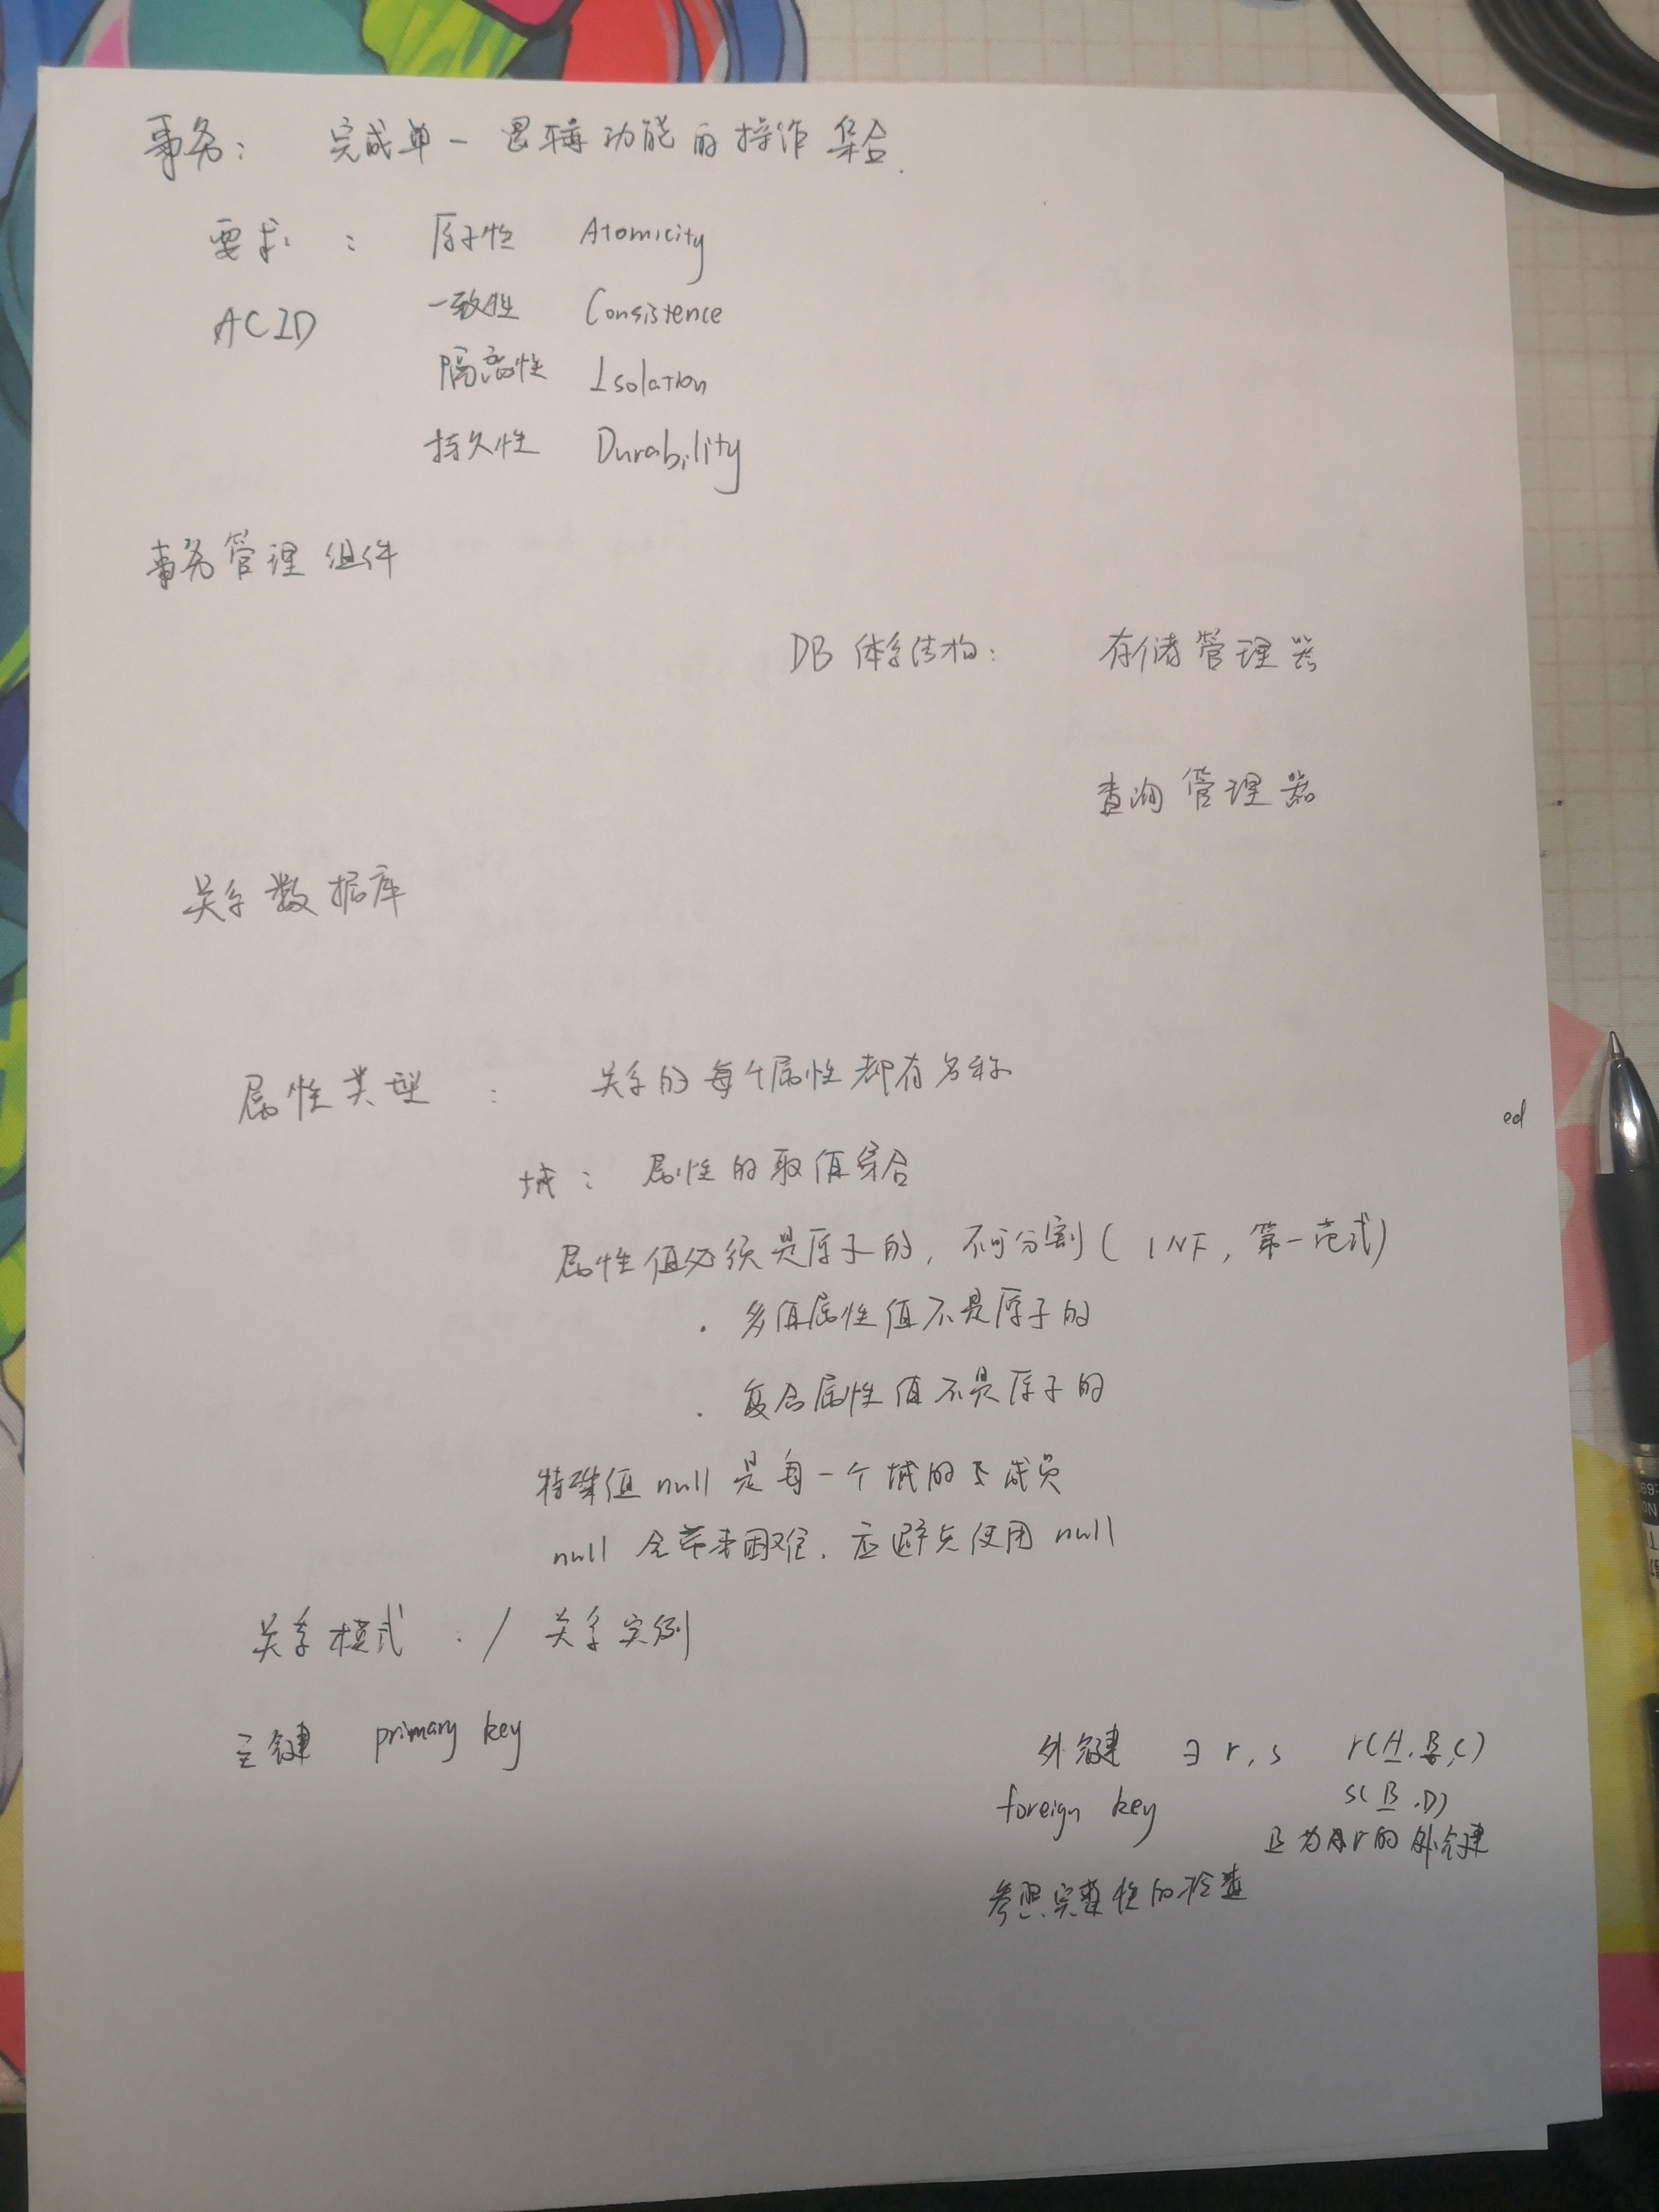 事务： 完成单一逻辑功能的操作集合.
要求： 原子性 Atomicity
ACID 一致性 Consistence
隔离性 Isolation
持久性 Durability
事务管理组件
DB 体系结构： 存储管理器
查询管理器
关系数据库
属性类型： 关系的每个属性都有名称
ed
域： 属性的取值集合
属性值必须是原子的, 不可分割( 1NF, 第一范式)
· 多值属性值不是原子的
· 复合属性值不是原子的
特殊值 null 是每一个域的 成员
null 会带来困难, 应避免使用 null
关系模式 . / 关系实例
主键 primary key
外键 ∃ r, s r(A, B, C)
foreign key s(B, D)
B 为 r 的外键
参照完整性的检查